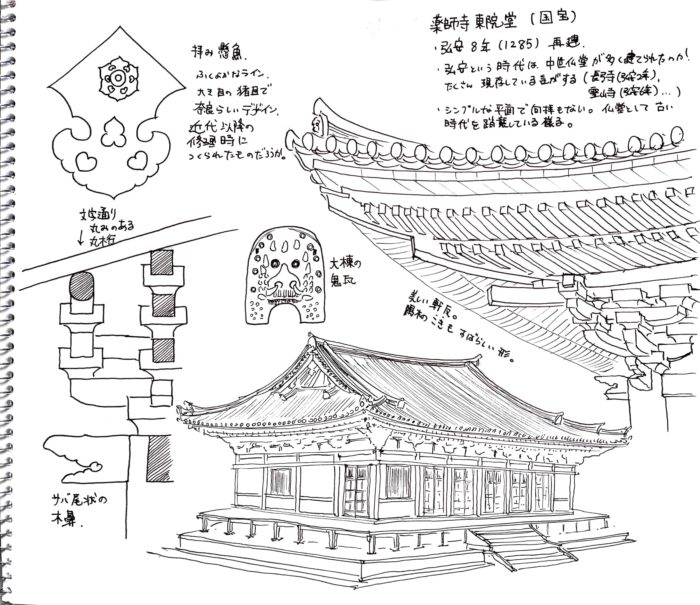 薬師寺 東院堂 (国宝)
・弘安8年(1285) 再建.
・弘安という時代は、中世仏堂が多く建てられたのか!
たくさん現存している気がする (長弓寺(弘安2年),
霊山寺(弘安6年)…)
・シンプルな平面で向拝もない。仏堂として古い
時代を踏襲している様子。
拝み懸魚
ふくよかなライン.
丸き目の猪目で
奈良らしいデザイン.
近代以降の
修理時に
つくられたものだろうか。
文字通り
丸みのある
丸桁
大棟の
鬼瓦
美しい軒反。
隅木のこきも すばらしい形。
サバ尾状の
木鼻.